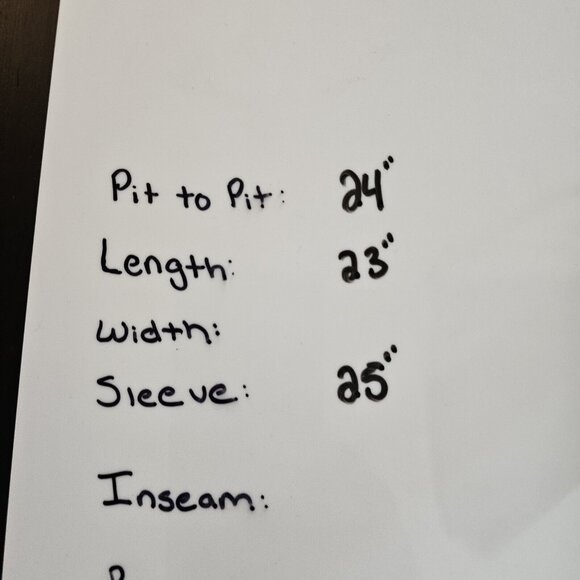 Pit to Pit: 24"
Length: 23"
Width:
Sleeve: 25"
Inseam: